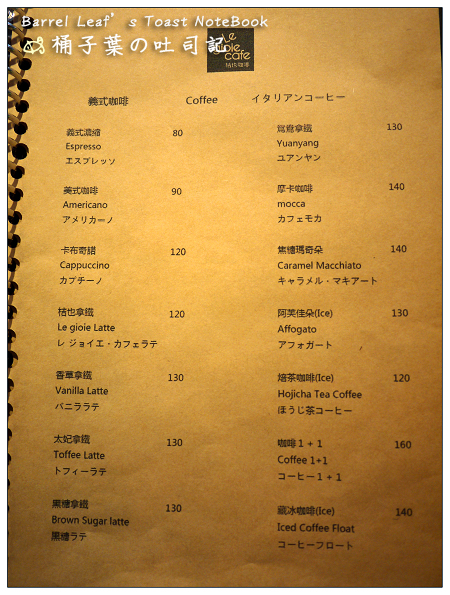 Barrel Leaf's Toast NoteBook
桶子葉の吐司記
Le
cafe
桔也咖啡
義式咖啡 Coffee イタリアンコーヒー
義式濃縮 80
Espresso
エスプレッソ
美式咖啡 90
Americano
アメリカーノ
卡布奇諾 120
Cappuccino
カプチーノ
桔也拿鐵 120
Le gioie Latte
レ ジョイエ・カフェラテ
香草拿鐵 130
Vanilla Latte
バニララテ
太妃拿鐵 130
Toffee Latte
トフィーラテ
黑糖拿鐵 130
Brown Sugar latte
黒糖ラテ
鴛鴦拿鐵 130
Yuanyang
ユアンヤン
摩卡咖啡 140
mocca
カフェモカ
焦糖瑪奇朵 140
Caramel Macchiato
キャラメル・マキアート
阿芙佳朵(Ice) 130
Affogato
アフォガート
焙茶咖啡(Ice) 120
Hojicha Tea Coffee
ほうじ茶コーヒー
咖啡 1 + 1 160
Coffee 1+1
コーヒー 1 + 1
藏冰咖啡(Ice) 140
Iced Coffee Float
コーヒーフロート